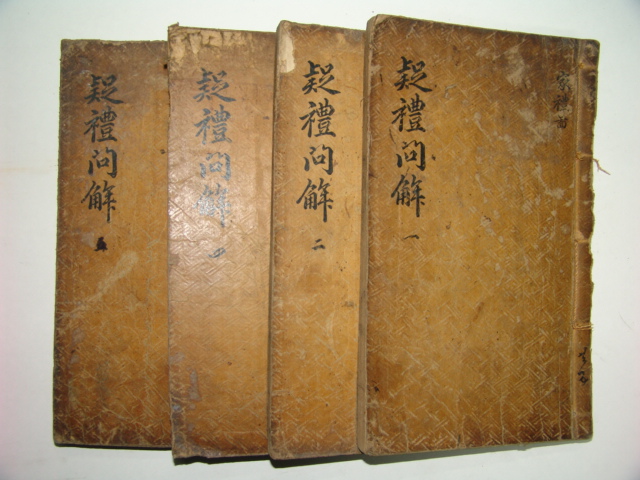 疑禮問解
一
疑禮問解
二
疑禮問解
四
疑禮問解
五
家禮